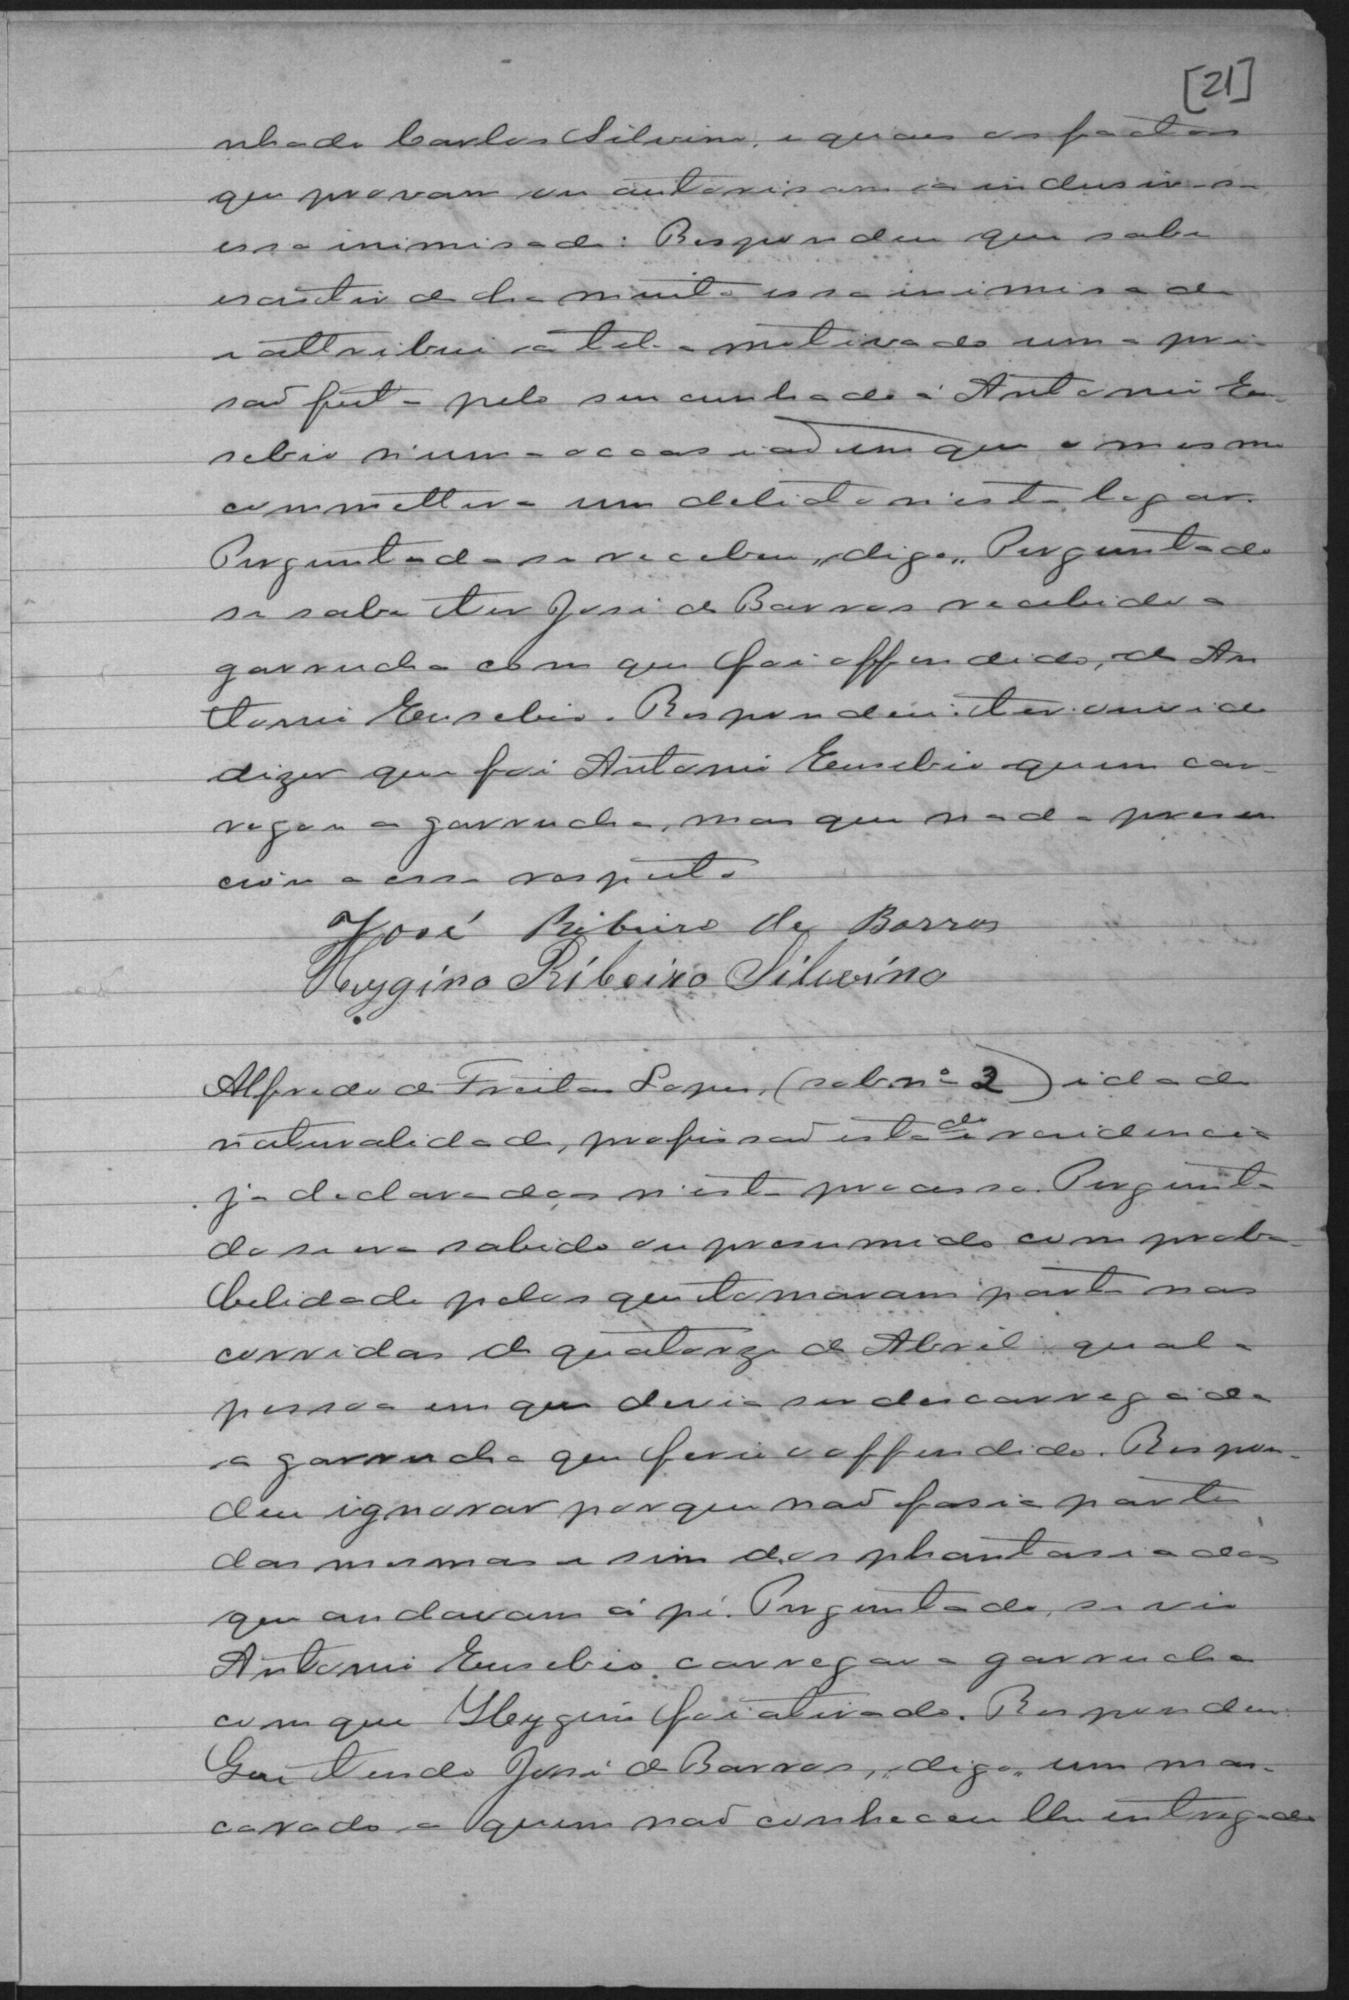 [21]
nhado Carlos Silvino, e quaes os factos
que provam ou autorisam a indusir-se
essa inimisade: Respondeu que sabe
existir de ha muito essa inimisade
e attribui a tel-a motivado uma pri-
são feita pelo seu cunhado á Antonio Eu-
sebio n'uma occasião em que o mesmo
commettera um delicto n'este logar.
Perguntado se recebeu, "digo", Perguntado
se sabe ter José de Barros recebido a
garrucha com que foi offendido, de An
tonio Eusebio. Respondeu: ter ouvido
dizer que foi Antonio Eusebio quem car-
regou a garrucha, mas que nada presen
ciou a esse respeito
José Ribeiro de Barros
Hygino Ribeiro Silverino
Alfredo de Freitas Lopes, (sob nº 2) idade
naturalidade, profissão estado e residencia
ja declaradas n'este processo. Pergunta
do se era sabido ou presumido com proba-
belidade pelos que tomavam parte nas
corridas de quatorze de Abril qual a
pessoa em que devia ser descarregada
a garrucha que ferio o offendido. Respon-
deu ignorar porque não fasia parte
das mesmas e sim dos phantasiados
que andavam á pé. Perguntado, se vio
Antonio Eusebio carregar a garrucha
com que Hygino foi atirado. Respondeu:
Que tendo José de Barros, "digo", um mas-
carado a quem não conheceu lhe entregado